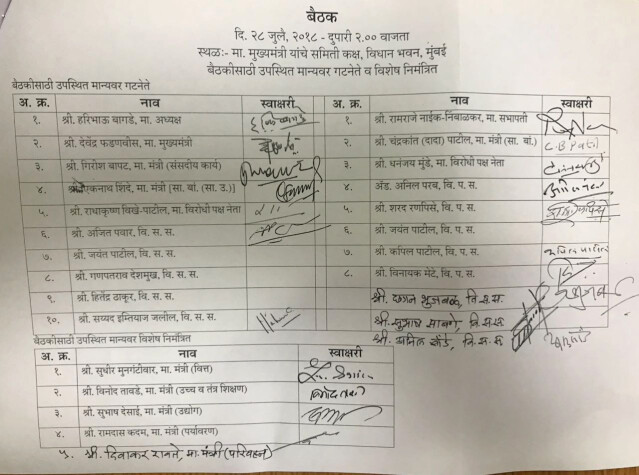 बैठक
दि. २८ जुलै, २०१८ - दुपारी २.०० वाजता
स्थळ:- मा. मुख्यमंत्री यांचे समिती कक्ष, विधान भवन, मुंबई
बैठकीसाठी उपस्थित मान्यवर गटनेते व विशेष निमंत्रित
बैठकीसाठी उपस्थित मान्यवर गटनेते
अ. क्र. नाव स्वाक्षरी
१. श्री. हरिभाऊ बागडे, मा. अध्यक्ष
२. श्री. देवेंद्र फडणवीस, मा. मुख्यमंत्री
३. श्री. गिरीश बापट, मा. मंत्री (संसदीय कार्य)
४. श्री. एकनाथ शिंदे, मा. मंत्री [सा. बां. (सा. उ.)]
५. श्री. राधाकृष्ण विखे-पाटील, मा. विरोधी पक्ष नेता
६. श्री. अजित पवार, वि. स. स.
७. श्री. जयंत पाटील, वि. स. स.
८. श्री. गणपतराव देशमुख, वि. स. स.
९. श्री. हितेंद्र ठाकूर, वि. स. स.
१०. श्री. सय्यद इम्तियाज जलील, वि. स. स.
अ. क्र. नाव स्वाक्षरी
१. श्री. रामराजे नाईक-निंबाळकर, मा. सभापती
२. श्री. चंद्रकांत (दादा) पाटील, मा. मंत्री (सा. बां.) C.B Patil
३. श्री. धनंजय मुंडे, मा. विरोधी पक्ष नेता
४. ॲड. अनिल परब, वि. प. स.
५. श्री. शरद रणपिसे, वि. प. स.
६. श्री. जयंत पाटील, वि. प. स.
७. श्री. कपिल पाटील, वि. प. स. कपिल पाटील
८. श्री. विनायक मेटे, वि. प. स.
श्री. छगन भुजबळ, वि.स.स.
श्री. सुभाष साबणे, वि.स.स.
श्री. अनिल बोंडे, वि. स. स
बैठकीसाठी उपस्थित मान्यवर विशेष निमंत्रित
अ. क्र. नाव स्वाक्षरी
१. श्री. सुधीर मुनगंटीवार, मा. मंत्री (वित्त)
२. श्री. विनोद तावडे, मा. मंत्री (उच्च व तंत्र शिक्षण)
३. श्री. सुभाष देसाई, मा. मंत्री (उद्योग)
४. श्री. रामदास कदम, मा. मंत्री (पर्यावरण)
५. श्री. दिवाकर रावते, मा. मंत्री (परिवहन)